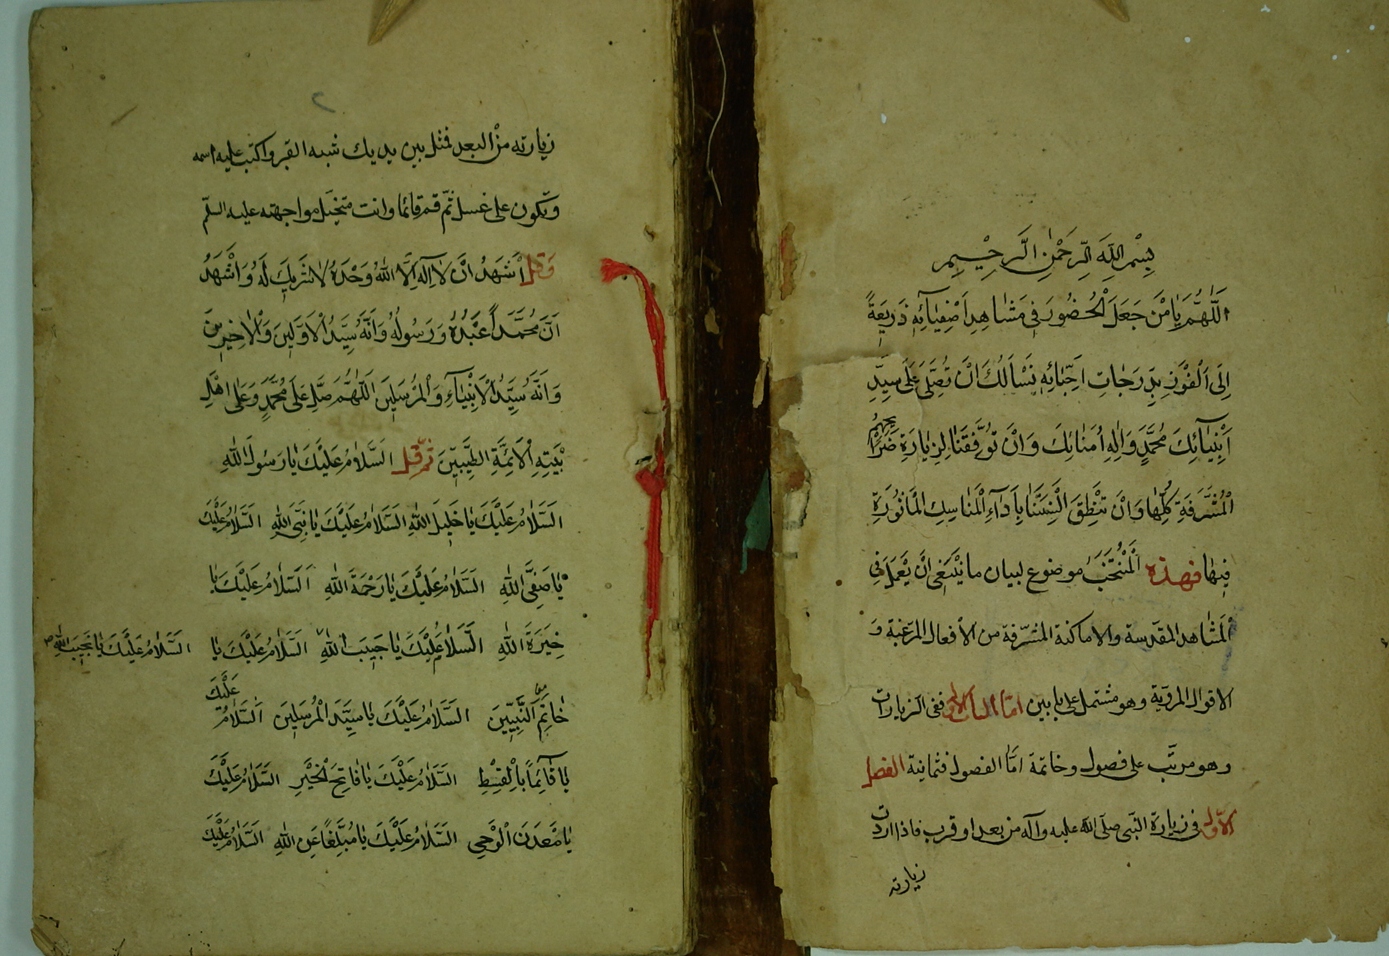 بِسْمِ اللَّهِ الرَّحْمٰنِ الرَّحِيمِ
اَللّٰهُمَّ يٰا مَنْ جَعَلَ الْحُضُورَ فِي مَشٰاهِدِ اَصْفِيٰائِهِ ذَرِيعَةً
اِلَى الْفَوْزِ بِدَرَجٰاتِ اَحِبّٰائِهِ نَسْأَلُكَ اَنْ تُصَلِّيَ عَلَى سَيِّدِ
اَنْبِيٰآئِكَ مُحَمَّدٍ وَاٰلِهِ اُمَنٰائِكَ وَاَنْ تُوَفِّقَنٰا لِزِيٰارَةِ ضَرٰايِحِهِمُ
الْمُشَرَّفَةِ كُلِّهٰا وَاَنْ تُنْطِقَ اَلْسِنَتَنٰا بِاَدٰآءِ الْمَنٰاسِكِ الْمَاْثُورَةِ
فِيهٰا فهذه الْمُنْتَخَبُ موضوع لبيان ما ينْبَغى اَنْ يُعْمَلَ فى
الْمَشٰاهد المقدسة والاماكنة المشرّفة من الأفعال المرغبة وَ
الاقوال المروية وهو مشتمل على بابين امّا الباب الاول ففى الزيارات
وهو مرتّب على فصول وخاتمة امّا الفصول فثمانية الفصل
الاول فى زيارة النبى صلّى اللّه عليه وآله من بعد او قرب فاذا اردت
زيارته
٢
زيارته من البعد فمثل بين يديك شبه القبر واكتب عليه اسمه
وتكون على غسل ثمّ قم قائما وانت متخيل مواجهته عليه السلم
وَقل اَشْهَدُ اَنْ لاٰ اِلٰهَ اِلَّا اللّٰهُ وَحْدَهُ لاٰ شَرِيكَ لَهُ وَاَشْهَدُ
اَنَّ مُحَمَّدًا عَبْدُهُ وَرَسُولُهُ وَاَنَّهُ سَيِّدُ الْاَوَّلِينَ وَالْاٰخِرِينَ
وَاَنَّهُ سَيِّدُ الْاَنْبِيٰآءِ وَالْمُرْسَلِينَ اَللّٰهُمَّ صَلِّ عَلَى مُحَمَّدٍ وَعَلَى اَهْلِ
بَيْتِهِ الْاَئِمَّةِ الطَّيِّبِينَ ثمّ قل اَلسَّلاٰمُ عَلَيْكَ يٰا رَسُولَ اللّٰهِ
اَلسَّلاٰمُ عَلَيْكَ يٰا خَلِيلَ اللّٰهِ اَلسَّلاٰمُ عَلَيْكَ يٰا نَبِيَّ اللّٰهِ اَلسَّلاٰمُ عَلَيْكَ
يٰا صَفِيَّ اللّٰهِ اَلسَّلاٰمُ عَلَيْكَ يٰا رَحْمَةَ اللّٰهِ اَلسَّلاٰمُ عَلَيْكَ يٰا
خِيَرَةَ اللّٰهِ اَلسَّلاٰمُ عَلَيْكَ يٰا حَبِيبَ اللّٰهِ اَلسَّلاٰمُ عَلَيْكَ يٰا
اَلسَّلاٰمُ عَلَيْكَ يٰا نَجِيبَ اللّٰهِ
خٰاتَمَ النَّبِيِّينَ اَلسَّلاٰمُ عَلَيْكَ يٰا سَيِّدَ الْمُرْسَلِينَ اَلسَّلاٰمُ عَلَيْكَ
يٰا قٰآئِمًا بِالْقِسْطِ اَلسَّلاٰمُ عَلَيْكَ يٰا فٰاتِحَ الْخَيْرِ اَلسَّلاٰمُ عَلَيْكَ
يٰا مَعْدِنَ الْوَحْيِ اَلسَّلاٰمُ عَلَيْكَ يٰا مُبَلِّغًا عَنِ اللّٰهِ اَلسَّلاٰمُ عَلَيْكَ